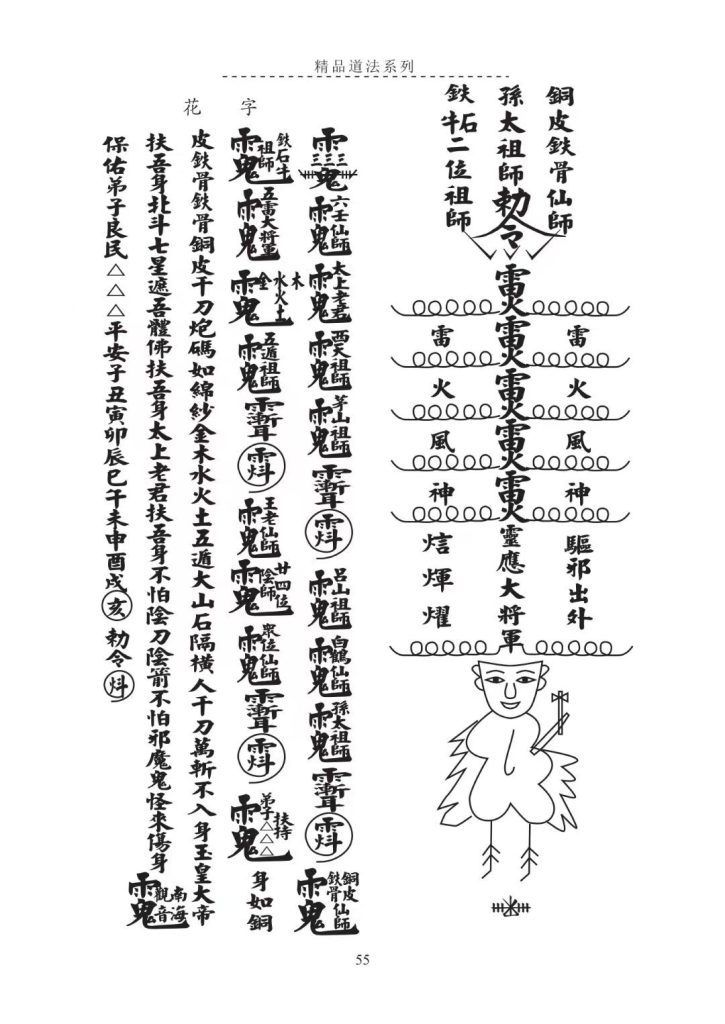 精品道法系列
銅皮鉄骨仙師
孫太祖師
鉄石牛二位祖師
勅令
雷火雷火雷火雷火雷火靈應大將軍
雷火風神
雷火風神
驅邪出外
煇燿
花字
六壬仙師
太上老君
西天祖師
茅山祖師
呂山祖師
白鶴仙師
孫太祖師
銅皮鉄骨仙師
鉄石牛祖師
五雷大將軍
金木水火土
五遁祖師
王老仙師
廿四位陰師
眾位仙師
弟子△△△扶持
身如銅
皮鉄骨鉄骨銅皮千刀炮碼如綿紗金木水火土五遁大山石隔橫人千刀萬斬不入身玉皇大帝
扶吾身北斗七星遮吾體佛扶吾身太上老君扶吾身不怕陰刀陰箭不怕邪魔鬼怪來傷身
南海觀音
保佑弟子良民△△△平安子丑寅卯辰巳午未申酉戌亥勅令
55